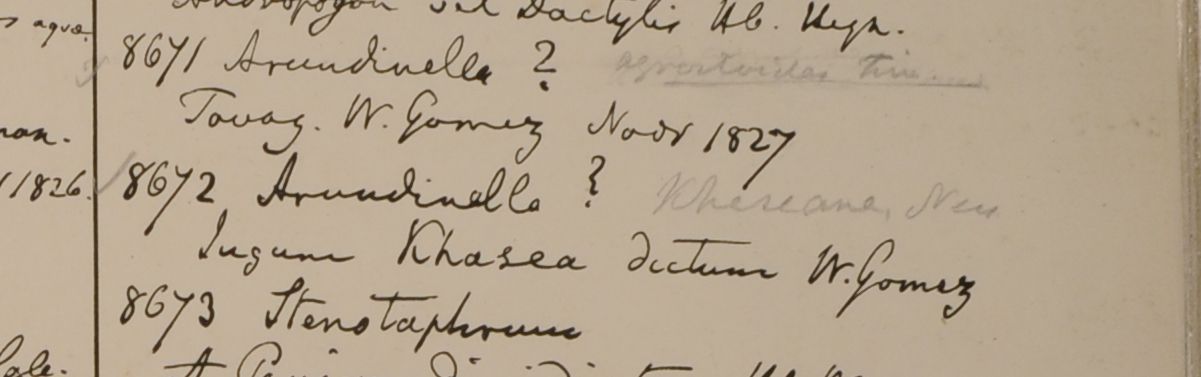 Andropogon vel Dactylis Hb. Heyn.
s aqua.
8671 Arundinella ? agrostoides Trin.
Tavoy. W. Gomez Novr 1827
8672 Arundinella ? Khaseana, Nees
1826.
Jugum Khasea dictum W. Gomez
8673 Stenotaphrum